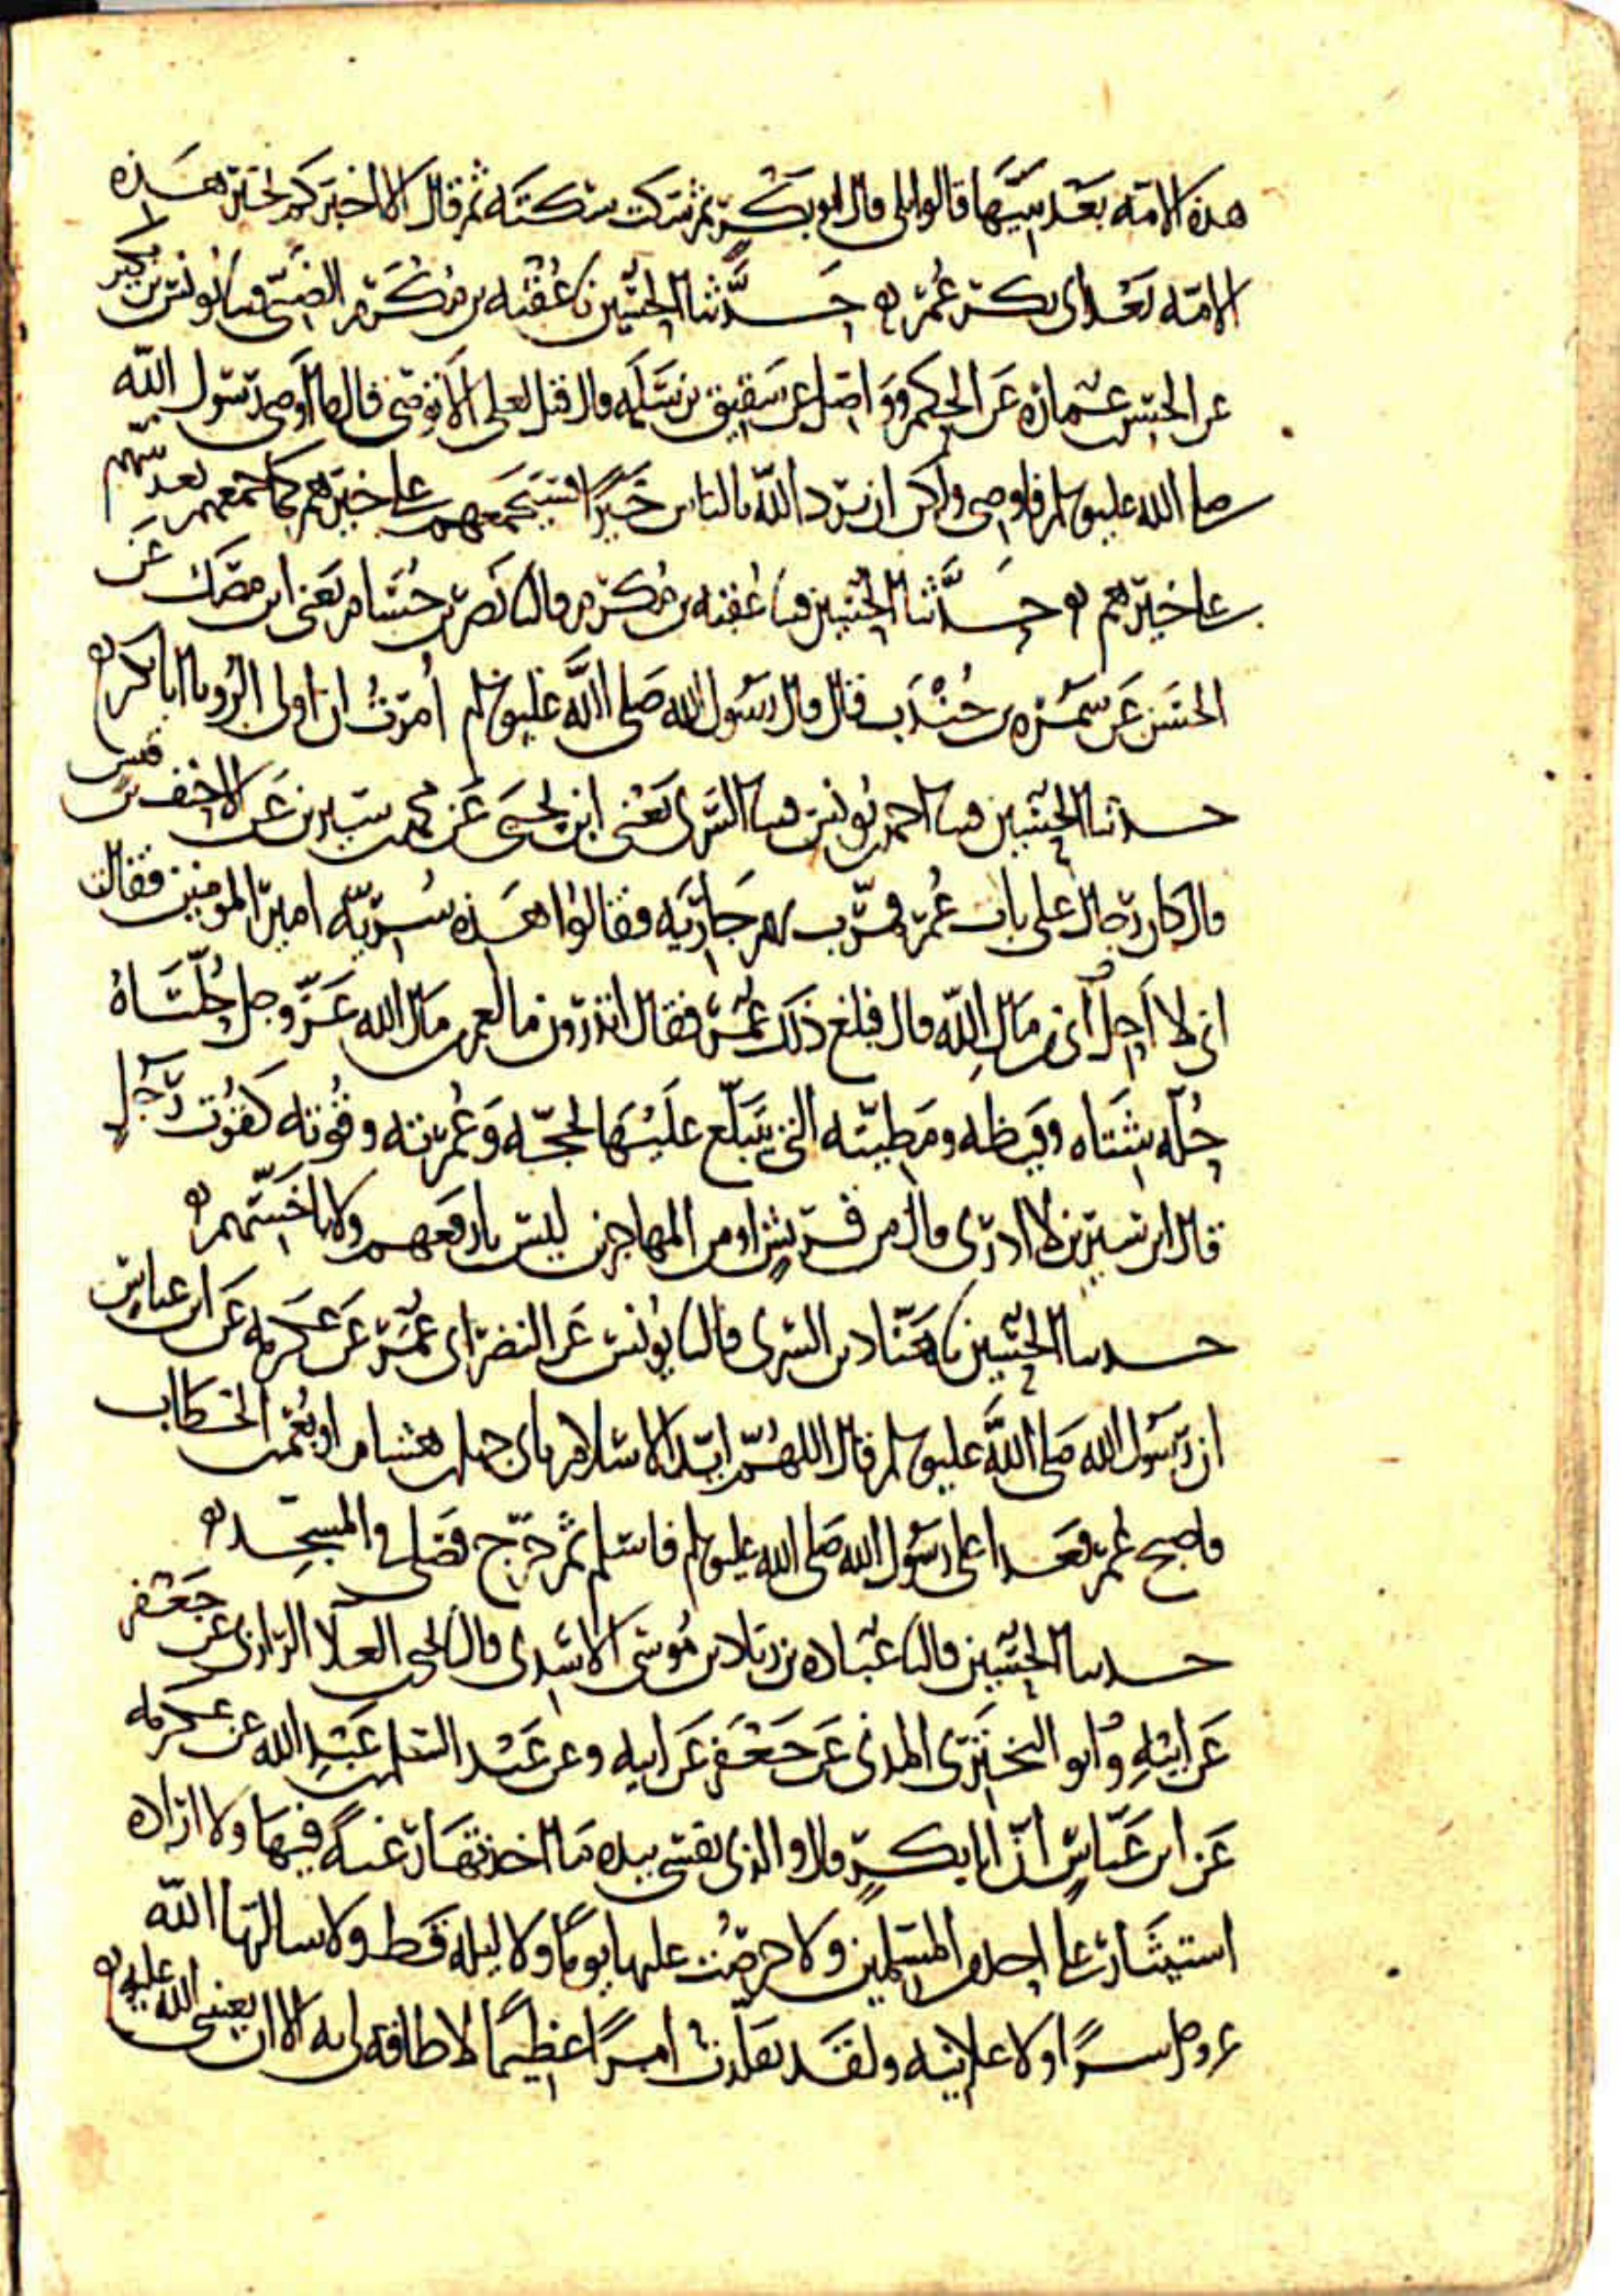 هذه الامه بعد نبيها قالوا بلى قال ابو بكر ثم سكت سكته ثم قال الا اخبركم بخير هذه
الامه بعد ابى بكر عمر حدثنا الحسين نا عقبه بن مكرم الضبى قثنا يونس بن بكير
عن الحسن بن عماره عن الحكم وواصل عن شقيق بن سلمه قال قيل لعلى الا توصى قال ما اوصى رسول الله
صلى الله عليه وسلم فاوصى ولكن ان يرد الله بالناس خيرا فسيجمعهم على خيرهم كما جمعهم بعد نبيهم
على خيرهم حدثنا الحسين قثنا عقبه بن مكرم قال نا نصر بن حسام يعنى ابن مصك عن
الحسن عن سمره بن جندب قال قال رسول الله صلى الله عليه وسلم امرت ان اولى الرويا ابا بكر
حدثنا الحسين قثنا احمد بن يونس قثنا السرى يعنى ابن يحيى عن محمد بن سيرين عن الاحنف بن قيس
قال كان رجال على باب عمر فمرت بهم جاريه فقالوا هذه سريه امير المومنين فقالت
انى لا احل انى من مال الله قال فبلغ ذلك عمر فقال اتدرون ما لعمر من مال الله عز وجل حلتاه
حله شتاه وقيظه ومطيته التى يتبلغ عليها لحجه وعمرته وقوته كقوت رجل
قال ابن سيرين لا ادرى قال من قريش او من المهاجرين ليس بارفعهم ولا باخسهم
حدثنا الحسين نا هناد بن السرى قال نا يونس عن النضر ابى عمر عن عكرمه عن ابن عباس
ان رسول الله صلى الله عليه وسلم قال اللهم ايد الاسلام بابى جهل بن هشام او بعمر بن الخطاب
فاصبح عمر فغدا على رسول الله صلى الله عليه وسلم فاسلم ثم خرج فصلى فى المسجد
حدثنا الحسين قال نا عباده بن زياد بن موسى الاسدى قال نا يحيى بن العلا الرازى عن جعفر
عن ابيه وابو البخترى المدنى عن جعفر عن ابيه وعن عبد السلم بن عبد الله عن عكرمه
عن ابن عباس ان ابا بكر قال والذى نفسى بيده ما اخذتها رغبه فيها ولا اراده
استيثار على احد من المسلمين ولا حرصت عليها يوما ولا ليله قط ولا سالتها الله
عز وجل سرا ولا علانيه ولقد تقلدت امرا عظيما لا طاقه لى به الا ان يعيننى الله عليه